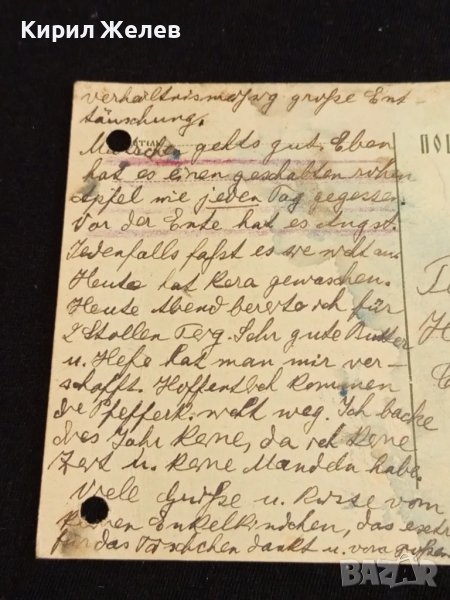 Кирил Желев
verhältnismäßig große Ent-
täuschung.
gehts gut. Eben
hat es einen geschabten rohen
Apfel wie jeden Tag gegessen.
Vor der Ente hat es Angst.
Jedenfalls faßt es sie nicht an.
Heute hat Kera gewaschen.
Heute Abend bereite ich für
2 Stollen Teig. Sehr gute Butter
u. Hefe hat man mir ver-
schafft. Hoffentlich kommen
die Pfefferk. nicht weg. Ich backe
dies Jahr keine, da ich keine
Zeit u. keine Mandeln habe.
Viele Grüße u. Küsse vom
kleinen Enkelkindchen, das extra
für das dankt u. vom großen
ПОЩ
bazar